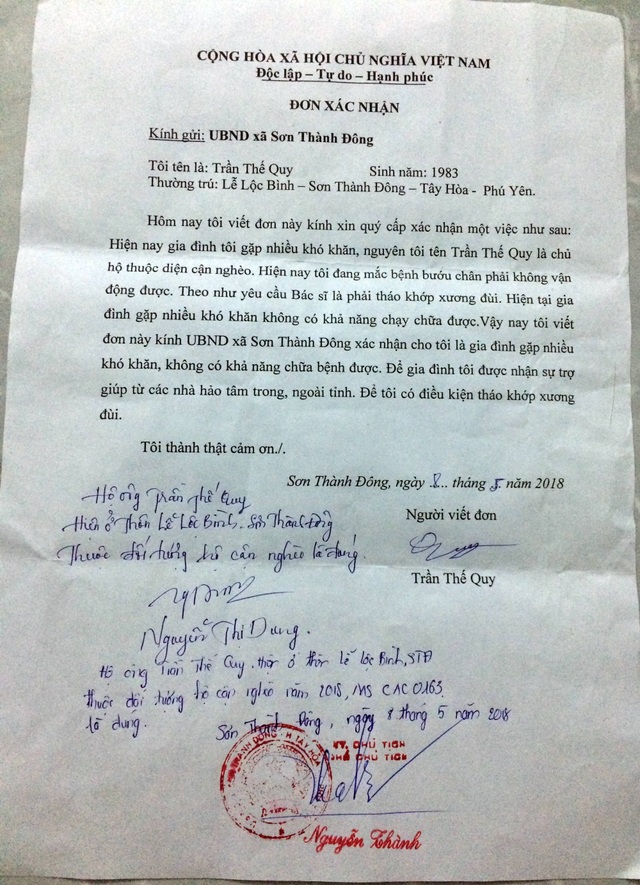 CỘNG HÒA XÃ HỘI CHỦ NGHĨA VIỆT NAM
Độc lập – Tự do – Hạnh phúc
ĐƠN XÁC NHẬN
Kính gửi: UBND xã Sơn Thành Đông
Tôi tên là: Trần Thế Quy Sinh năm: 1983
Thường trú: Lễ Lộc Bình – Sơn Thành Đông – Tây Hòa - Phú Yên.
Hôm nay tôi viết đơn này kính xin quý cấp xác nhận một việc như sau:
Hiện nay gia đình tôi gặp nhiều khó khăn, nguyên tôi tên Trần Thế Quy là chủ
hộ thuộc diện cận nghèo. Hiện nay tôi đang mắc bệnh bướu chân phải không vận
động được. Theo như yêu cầu Bác sĩ là phải tháo khớp xương đùi. Hiện tại gia
đình gặp nhiều khó khăn không có khả năng chạy chữa được.Vậy nay tôi viết
đơn này kính UBND xã Sơn Thành Đông xác nhận cho tôi là gia đình gặp nhiều
khó khăn, không có khả năng chữa bệnh được. Để gia đình tôi được nhận sự trợ
giúp từ các nhà hảo tâm trong, ngoài tỉnh. Để tôi có điều kiện tháo khớp xương
đùi.
Tôi thành thật cảm ơn./.
Sơn Thành Đông, ngày 8... tháng 5 năm 2018
Người viết đơn
Trần Thế Quy
Hộ ông Trần Thế Quy
Hiện ở thôn Lễ Lộc Bình. Sơn Thành Đông
Thuộc đối tượng hộ cận nghèo là đúng.
Nguyễn Thị Dung.
Hộ ông Trần Thế Quy, ở thôn Lễ Lộc Bình, STĐ
thuộc đối tượng hộ cận nghèo năm 2018, MS CAC0163
là đúng.
Sơn Thành Đông, ngày 8 tháng 5 năm 2018
KT. CHỦ TỊCH
PHÓ CHỦ TỊCH
THÀNH ĐÔNG - H. TÂY HÒA
Nguyễn Thành